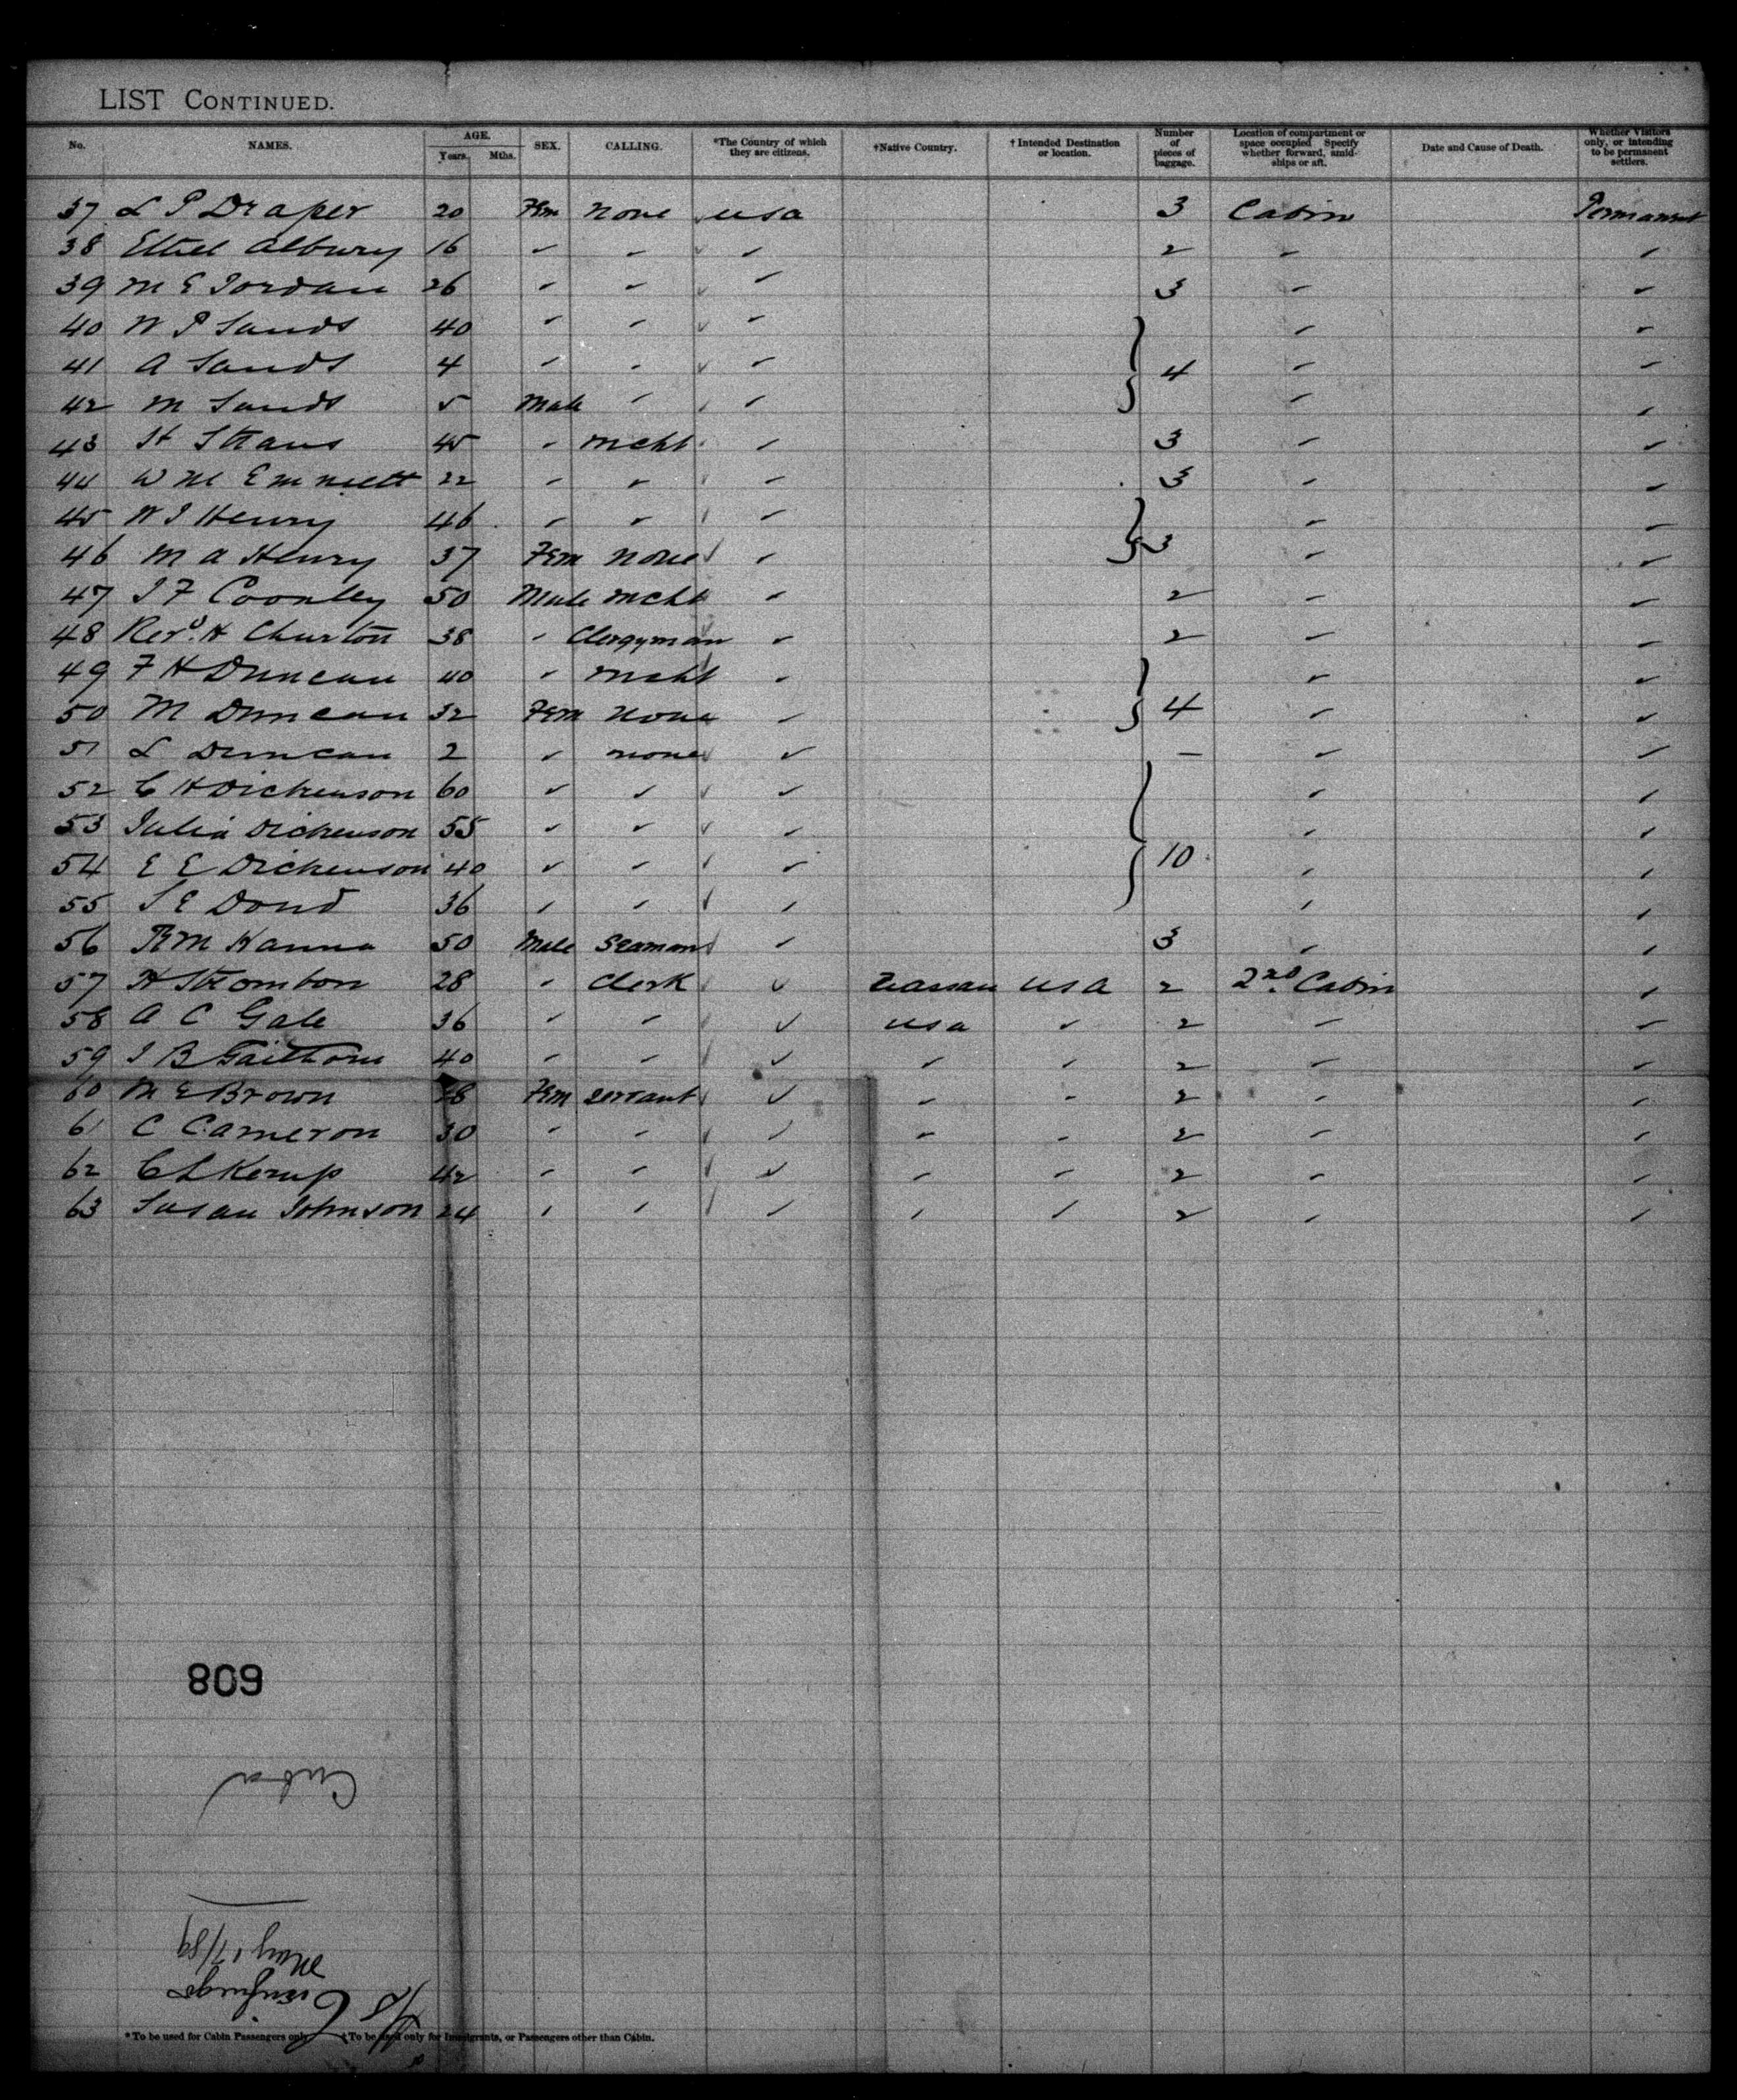 LIST CONTINUED.
No. NAMES. AGE. Years. Mths. SEX. CALLING. *The Country of which they are citizens. †Native Country. †Intended Destination or location. Number of pieces of baggage. Location of compartment or space occupied Specify whether forward, amidships or aft. Date and Cause of Death. Whether Visitors only, or intending to be permanent settlers.
37 L P Draper 20 Fem none usa 3 Cabin Permanent
38 Ethel Albury 16 " " " 2 " "
39 M E Jordan 26 " " " 3 " "
40 W P Sands 40 " " " " "
41 A Sands 4 " " " } 4 " "
42 M Sands 5 Male " " " "
43 H Straus 45 " mcht " 3 " "
44 W M Emmett 22 " " " 3 " "
45 W J Henry 46 " " " " "
46 M A Henry 37 Fem none " } 3 " "
47 J F Coonley 50 Male mcht " 2 " "
48 Revd. H Churton 38 " Clergyman " 2 " "
49 F H Duncan 40 " mcht " " "
50 M Duncan 32 Fem none " } 4 " "
51 L Duncan 2 " none " — " "
52 C H Dickenson 60 " " " " "
53 Julia Dickenson 55 " " " " "
54 E E Dickenson 40 " " " } 10 " "
55 S E Doud 36 " " " " "
56 R M Hanna 50 Male Seaman " 3 " "
57 H Strombon 28 " Clerk " Nassau USA 2 2nd. Cabin "
58 A C Gale 36 " " " usa " 2 " "
59 J B 40 " " " " " 2 " "
60 M E Brown 28 Fem servant " " " 2 " "
61 C Cameron 30 " " " " " 2 " "
62 C L Kemp 42 " " " " " 2 " "
63 Susan Johnson 24 " " " " " 2 " "
809
Cuba
May 17/89
Cienfuegos
S/S
*To be used for Cabin Passengers only †To be used only for Immigrants, or Passengers other than Cabin.